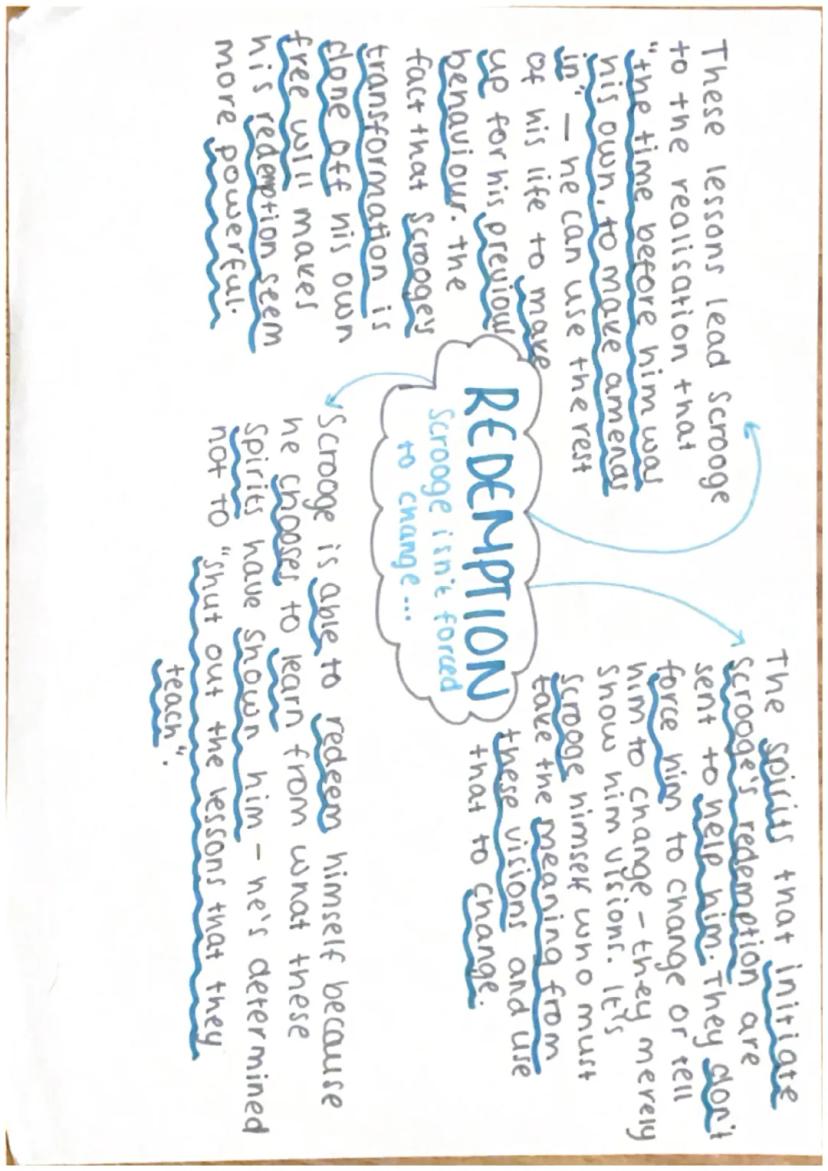 REDEMPTION
Scrooge isn't forced
to change...
These lessons lead Scrooge
to the realisation that
"the time before him was
his own, to make amends
in" – he can use the rest
of his life to make
up for his previous
behaviour. the
fact that Scrooge's
transformation is
done off his own
free will makes
his redemption seem
more powerful.
The spirits that initiate
Scrooge's redemption are
sent to help him. They don't
force him to change or tell
him to change – they merely
show him visions. It's
Scrooge himself who must
take the meaning from
these visions and use
that to change.
Scrooge is able to redeem himself because
he chooses to learn from what these
spirits have shown him – he's determined
not to "shut out the lessons that they
teach".